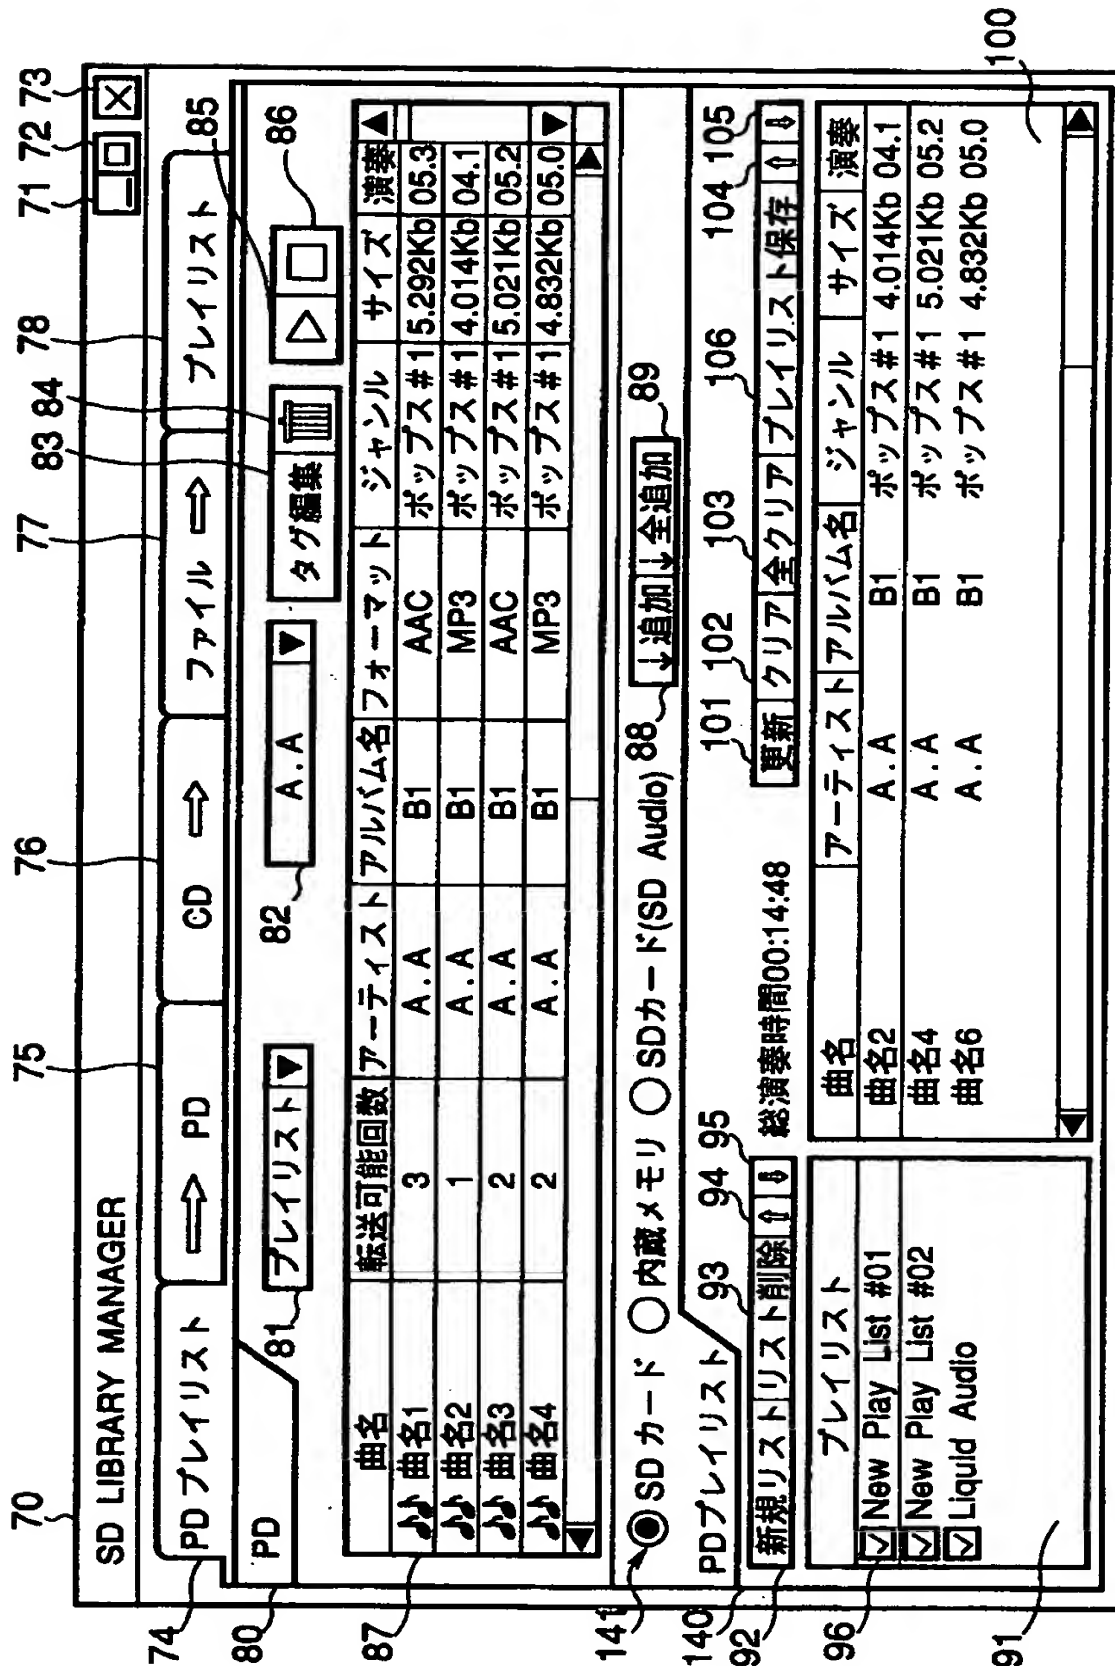 70 71 72 73
SD LIBRARY MANAGER
74 75 76 77 78
PD プレイリスト ⇨ PD CD ⇨ ファイル ⇨ プレイリスト
80 PD
81 プレイリスト ▼ 82 A.A ▼ 83 タグ編集 84 85 ▷ 86 □
87
曲名 転送可能回数 アーティスト アルバム名 フォーマット ジャンル サイズ 演奏
♪♪ 曲名1 3 A.A B1 AAC ポップス#1 5.292Kb 05.3
♪♪ 曲名2 1 A.A B1 MP3 ポップス#1 4.014Kb 04.1
♪♪ 曲名3 2 A.A B1 AAC ポップス#1 5.021Kb 05.2
♪♪ 曲名4 2 A.A B1 MP3 ポップス#1 4.832Kb 05.0
141 ◉SDカード ○内蔵メモリ ○SDカード(SD Audio) 88 ↓追加 ↓全追加 89
140 PDプレイリスト
92 93 94 95 101 102 103 106 104 105
新規リスト リスト削除 ⇧ ⇩ 総演奏時間00:14:48 更新 クリア 全クリア プレイリスト保存 ⇧ ⇩
プレイリスト
96 ☑ New Play List #01
☑ New Play List #02
☑ Liquid Audio
91
曲名 アーティスト アルバム名 ジャンル サイズ 演奏
曲名2 A.A B1 ポップス#1 4.014Kb 04.1
曲名4 A.A B1 ポップス#1 5.021Kb 05.2
曲名6 A.A B1 ポップス#1 4.832Kb 05.0
100